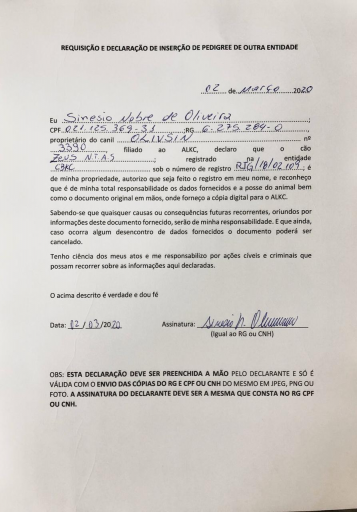 REQUISIÇÃO E DECLARAÇÃO DE INSERÇÃO DE PEDIGREE DE OUTRA ENTIDADE
02 de Março 2020
Eu Sinesio Nobre de Oliveira;
CPF 021.125.369-31 ;RG 6.275.289-0,
proprietário do canil OLIVSIN nº
3390, filiado ao ALKC, declaro que o cão
ZEUS N.T.A.S; registrado na entidade
CBKC sob o número de registro RJG/18/02109; é
de minha propriedade, autorizo que seja feito o registro em meu nome, e reconheço
que é de minha total responsabilidade os dados fornecidos e a posse do animal bem
como o documento original em mãos, onde forneço a cópia digital para o ALKC.
Sabendo-se que quaisquer causas ou consequências futuras recorrentes, oriundos por
informações deste documento fornecido, serão de minha responsabilidade. E que ainda,
caso ocorra algum desencontro de dados fornecidos o documento poderá ser
cancelado.
Tenho ciência dos meus atos e me responsabilizo por ações cíveis e criminais que
possam recorrer sobre as informações aqui declaradas.
O acima descrito é verdade e dou fé
Data: 02/03/2020 Assinatura: Sinesio N. Oliveira
(Igual ao RG ou CNH)
OBS: ESTA DECLARAÇÃO DEVE SER PREENCHIDA A MÃO PELO DECLARANTE E SÓ É
VÁLIDA COM O ENVIO DAS CÓPIAS DO RG E CPF OU CNH DO MESMO EM JPEG, PNG OU
FOTO. A ASSINATURA DO DECLARANTE DEVE SER A MESMA QUE CONSTA NO RG CPF
OU CNH.